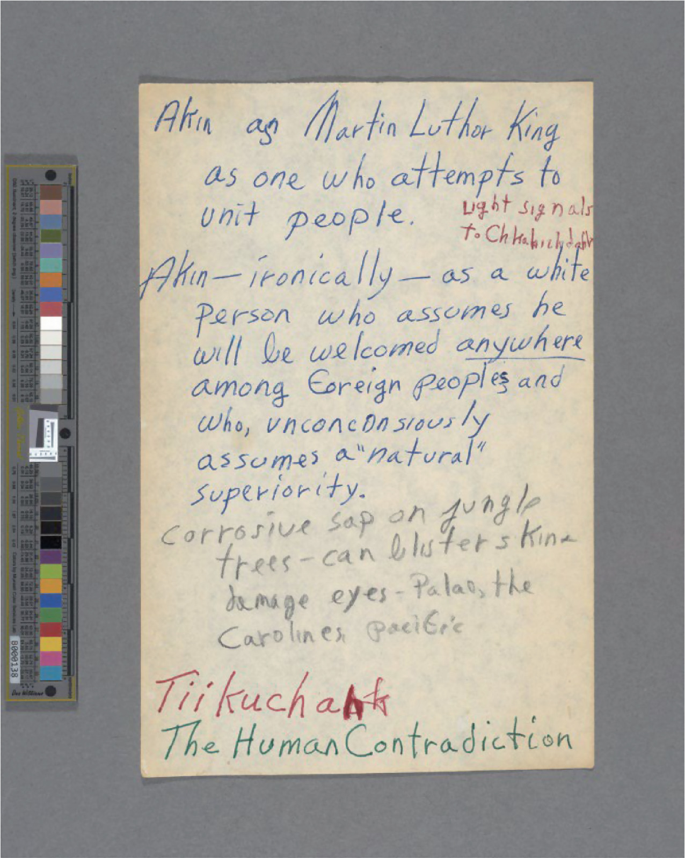 Akin as Martin Luthor King
as one who attempts to
unit people.
Light signals
to Chkahichdahk
Akin—ironically—as a white
person who assumes he
will be welcomed anywhere
among foreign peoples and
who, unconconsiously
assumes a "natural"
superiority.
corrosive sap on jungle
trees—can blister skin
damage eyes—Palao, the
Carolines, Pacific
Tiikuchahk
The Human Contradiction